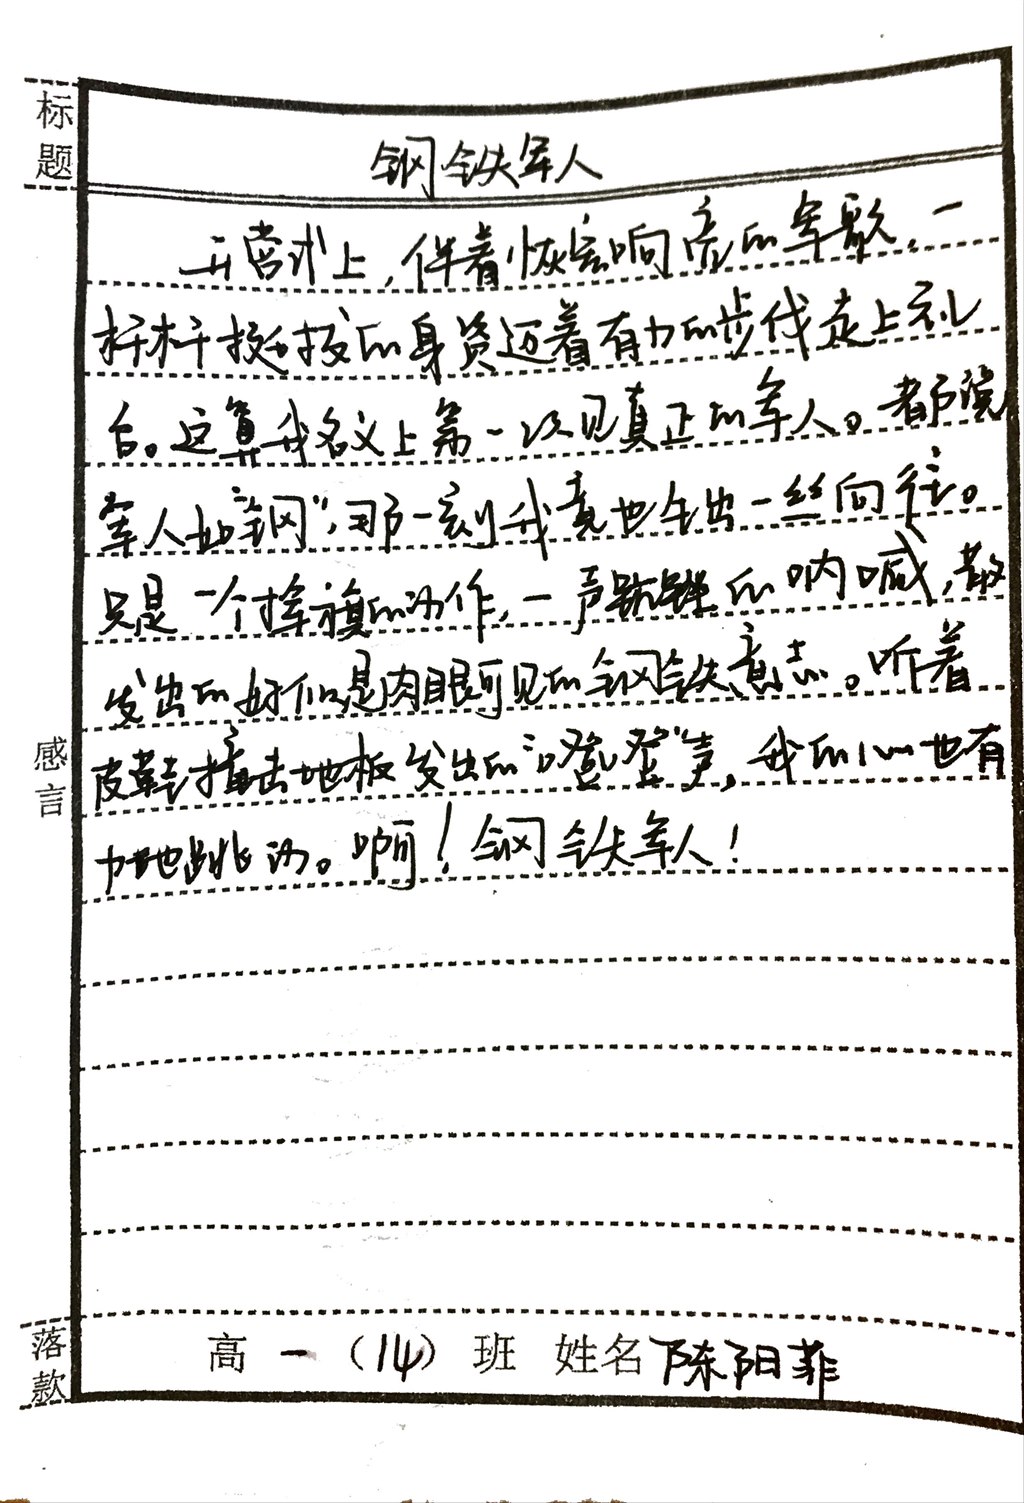 标题
钢铁军人
开营式上,伴着恢宏响亮的军歌,一
杆杆挺拔的身资迈着有力的步伐走上礼
台。这算我名义上第一次见真正的军人。都说
军人如“钢”,那一刻我竟也生出一丝向往。
只是一个挥旗的动作,一声铿锵的呐喊,散
发出的好似是肉眼可见的钢铁意志。听着
皮鞋撞击地板发出的“噔噔”声,我的心也有
力地跳动。啊!钢铁军人!
感言
落款
高一(14)班 姓名陈阳菲